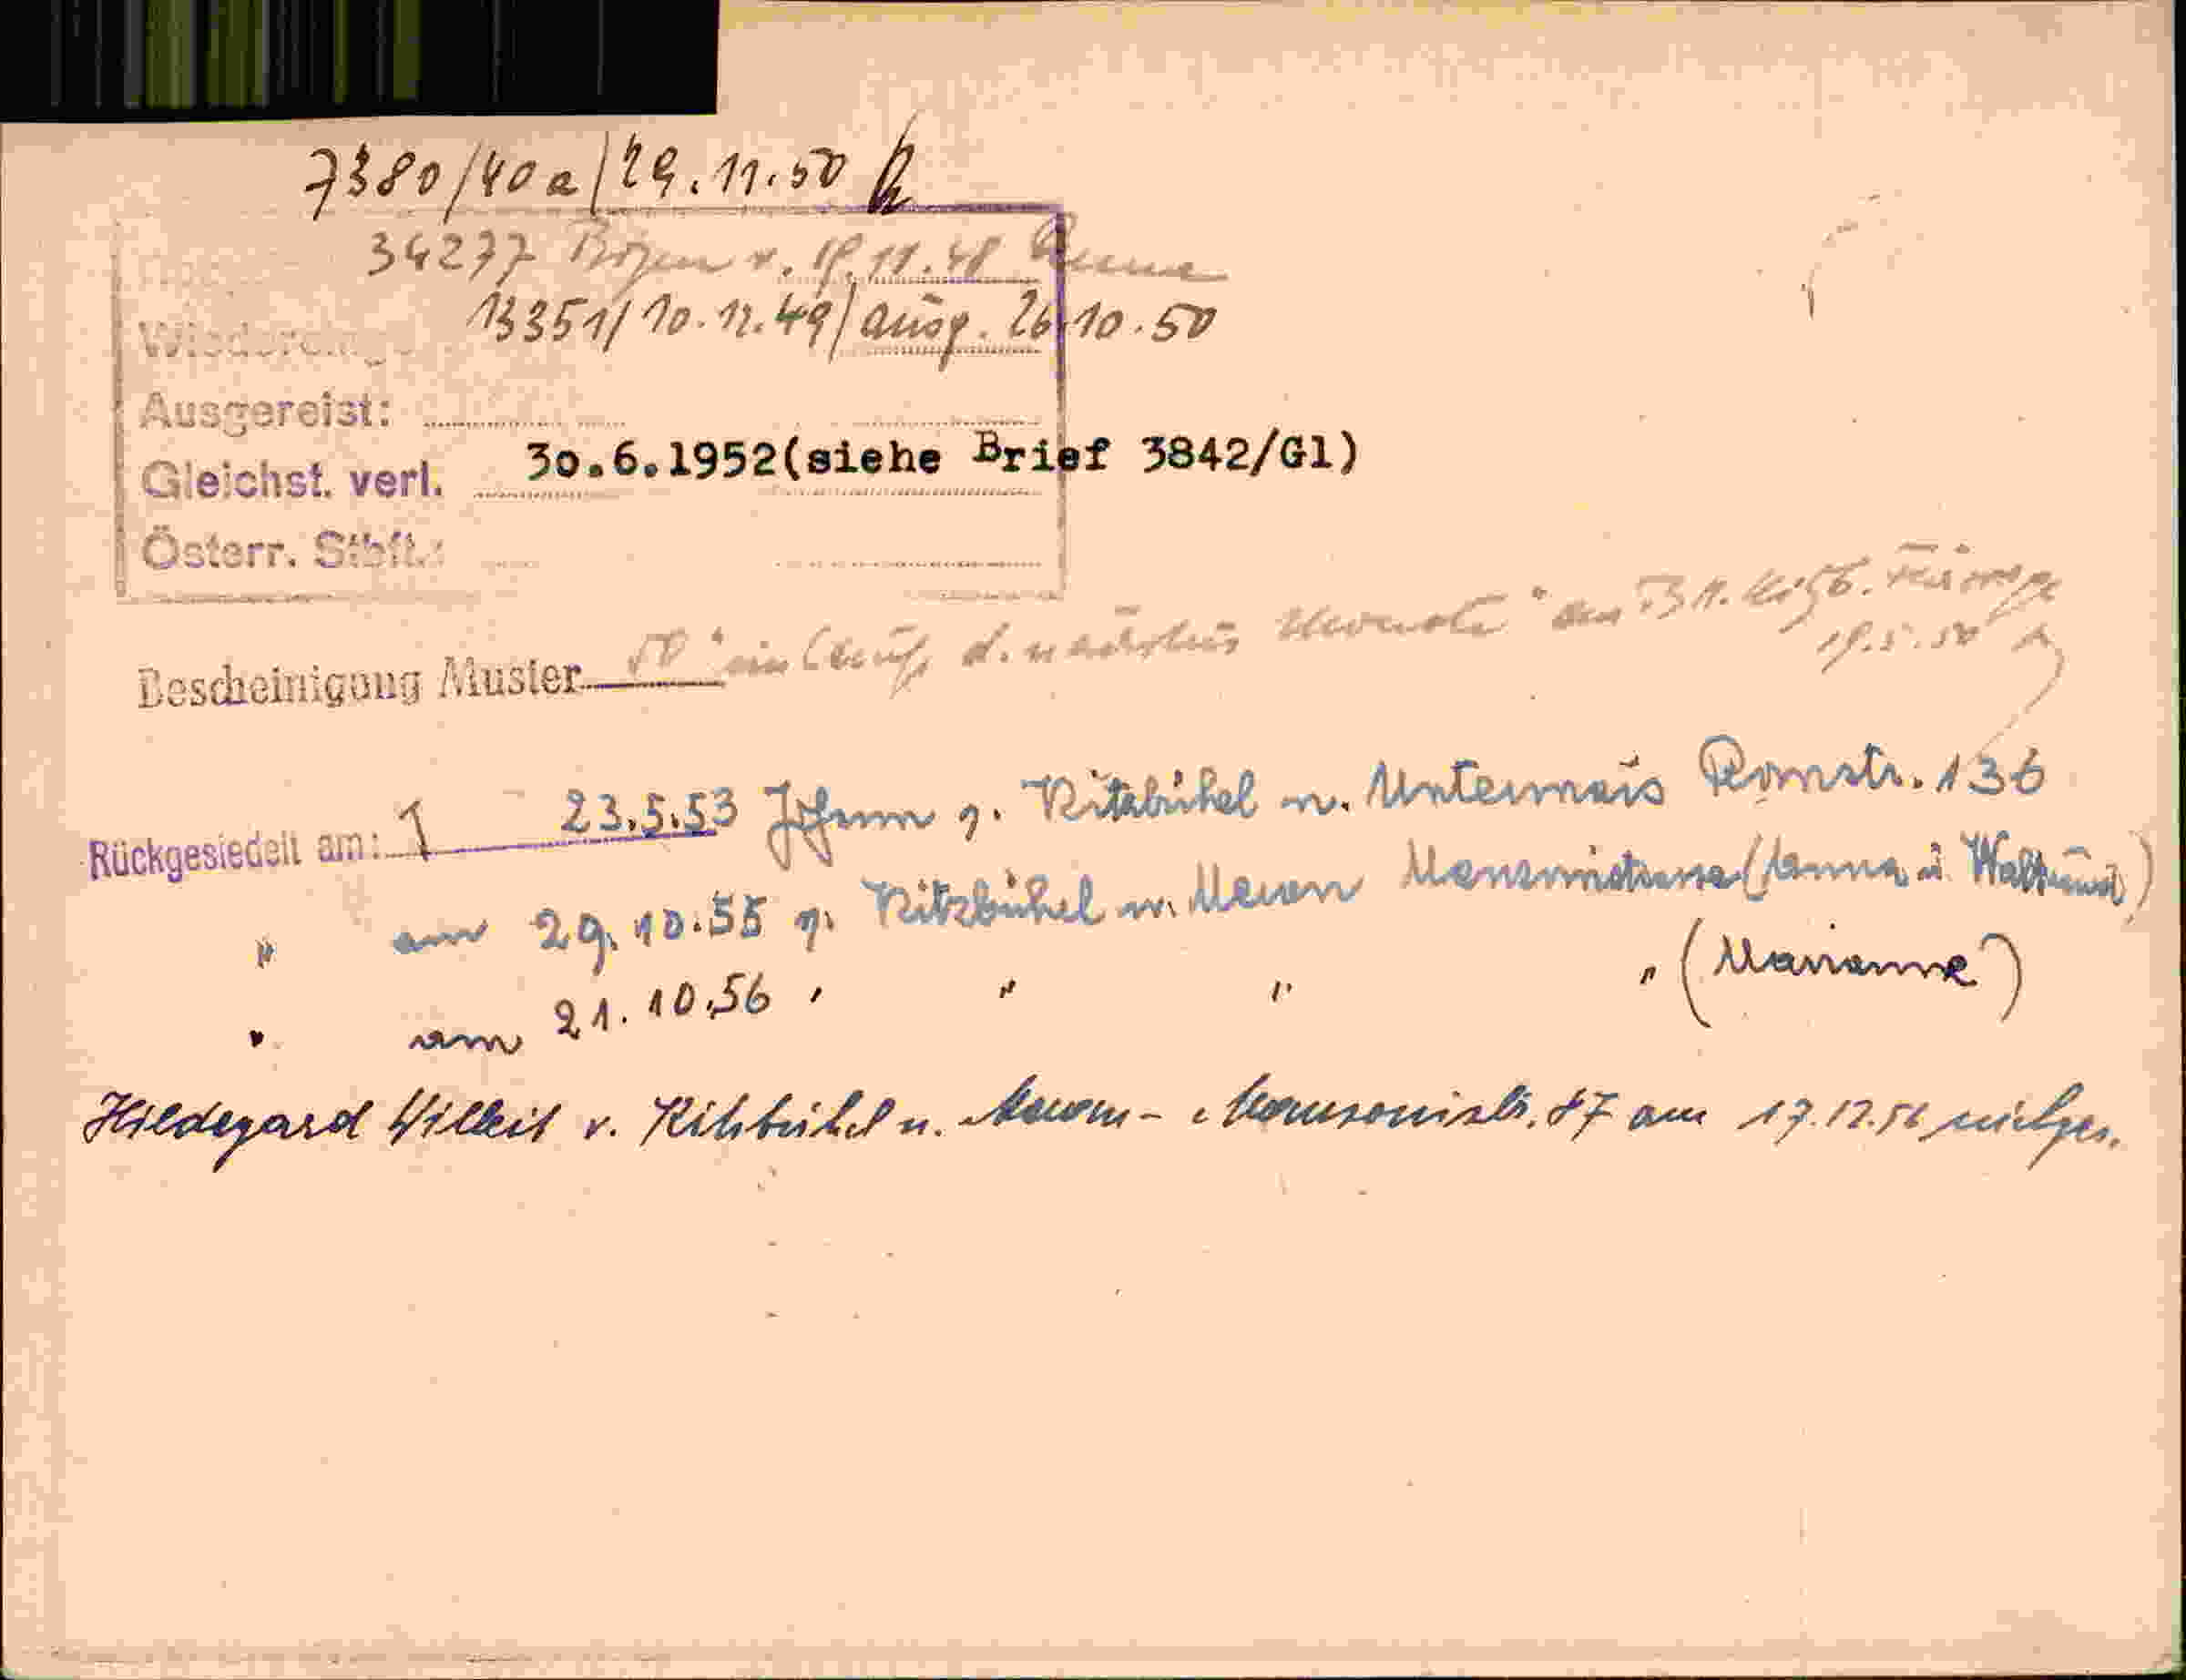 7380/40a/29.11.50
34277 Bozen v. 18.11.48
13351/10.12.49/ausg. 26.10.50
Ausgereist:
Gleichst. verl. 30.6.1952(siehe Brief 3842/Gl)
Österr. Stbft.:
Bescheinigung Muster
19.5.50
Rückgesiedelt am: 1 23.5.53 v. Kitzbühel n. Untermais Romstr. 136
" am 29.10.55 v. Kitzbühel n. Meran (Anna u. Waltraud)
" am 21.10.56 " " " " (Marianne)
Hildegard v. Kitzbühel n. Meran - 87 am 17.12.56 rückges.